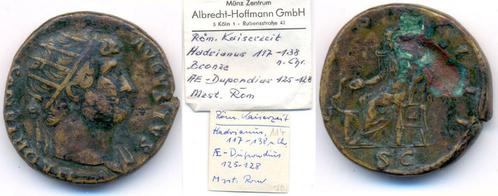 Münz Zentrum
Albrecht-Hoffmann GmbH
5 Köln 1 - Rubensstraße 42
Röm. Kaiserzeit
Hadrianus 117-138
n. Chr.
Bronze
AE-Dupondius 125-128
Mzst. Rom
Röm. Kaiserzeit
Hadrianus,
117-138 n. Chr
Æ-Dupondius
125-128
Mzst. Rom
AVGVSTVS
S